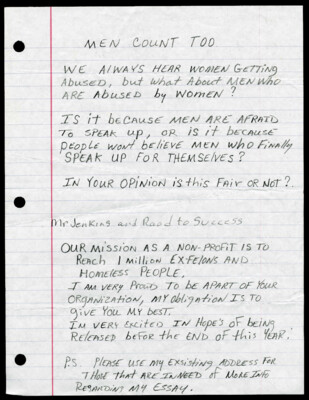 MEN COUNT TOO
WE ALWAYS HEAR WOMEN GETTING
Abused, but What About MEN Who
ARE AbUSED by WOMEN?
Is it because MEN ARE AFRAID
To SPEAK UP, OR is it because
PEOPLE WON'T bELIEVE MEN WHO Finally
SPEAK UP FOR THEMSELVES?
IN YOUR OPINION is this FAIR OR NOT?
Mr Jenkins and Road to Success
OUR MISSION AS A NON-PROFIT IS TO
REACH 1 Million EX-FELONS AND
HOMELESS PEOPLE.
I AM VERY PROUD TO BE APART OF YOUR
ORGANIZATION, MY ObligATION IS TO
GIVE YOU MY BEST.
I'M VERY EXCITED IN HOPE'S OF bEING
RELEASED beforE THE END OF THIS YEAR!
P.S. PLEASE USE MY EXSISTING ADDRESS FOR
THOSE THAT ARE IN NEED OF MORE INFO
REGARDING MY ESSAY.